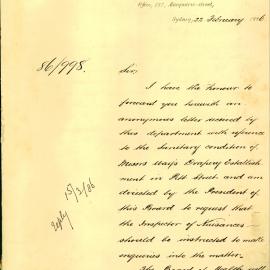 Office, 127, Macquarie-street,
Sydney, 22 February 1886
86/998.
Sir,
I have the honour to
forward you herewith an
anonymous letter received by
this department with reference
to the Sanitary condition of
Messrs Way's Drapery Establish
ment in Pitt Street and am
directed by the President of
this Board to request that
the Inspector of Nuisances
should be instructed to make
enquiries into the matter.
The Board of Health
15/3/86